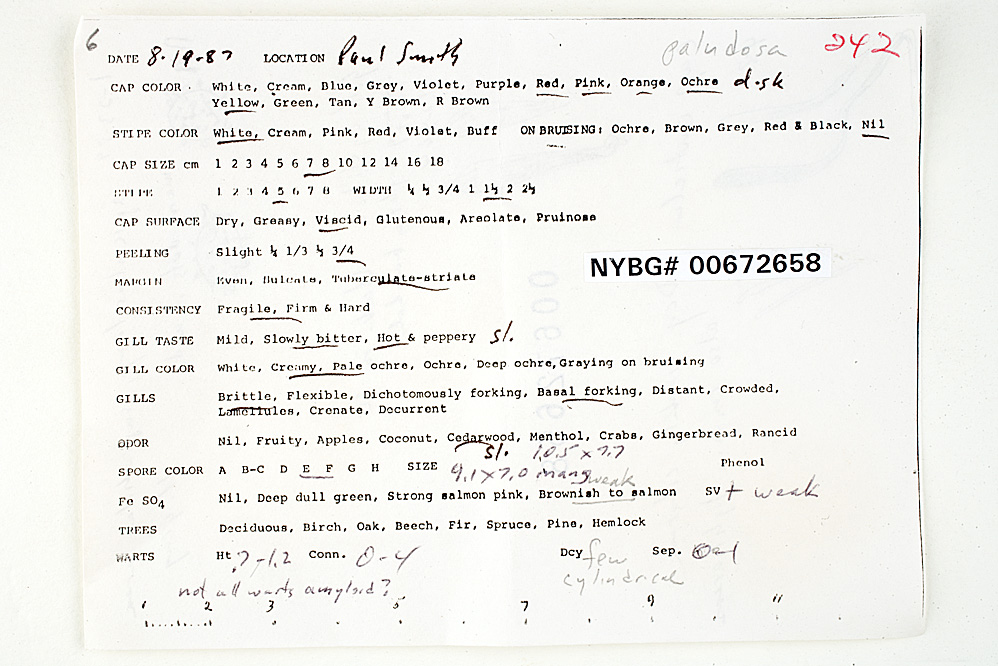 6 DATE 8-19-87 LOCATION Paul Smith paludosa 242
CAP COLOR · White, Cream, Blue, Grey, Violet, Purple, Red, Pink, Orange, Ochre disk
Yellow, Green, Tan, Y Brown, R Brown
STIPE COLOR White, Cream, Pink, Red, Violet, Buff ON BRUISING: Ochre, Brown, Grey, Red & Black, Nil
CAP SIZE cm 1 2 3 4 5 6 7 8 10 12 14 16 18
STIPE 1 2 3 4 5 6 7 8 WIDTH ¼ ½ 3/4 1 1½ 2 2½
CAP SURFACE Dry, Greasy, Viscid, Glutenous, Areolate, Pruinose
PEELING Slight ¼ 1/3 ½ 3/4
NYBG# 00672658
MARGIN Even, Sulcate, Tuberculate-striate
CONSISTENCY Fragile, Firm & Hard
GILL TASTE Mild, Slowly bitter, Hot & peppery sl.
GILL COLOR White, Creamy, Pale ochre, Ochre, Deep ochre, Graying on bruising
GILLS Brittle, Flexible, Dichotomously forking, Basal forking, Distant, Crowded,
Lamellules, Crenate, Decurrent
ODOR Nil, Fruity, Apples, Coconut, Cedarwood, Menthol, Crabs, Gingerbread, Rancid
sl. 10.5 x 7.7
SPORE COLOR A B-C D E F G H SIZE 9.1 x 7.0 weak Phenol
Fe SO4 Nil, Deep dull green, Strong salmon pink, Brownish to salmon SV + weak
TREES Deciduous, Birch, Oak, Beech, Fir, Spruce, Pine, Hemlock
WARTS Ht .7-1.2 Conn. 0-4 Dcy few Sep. 0-1
cylindrical
not all warts amyloid?
1 2 3 5 7 9 11